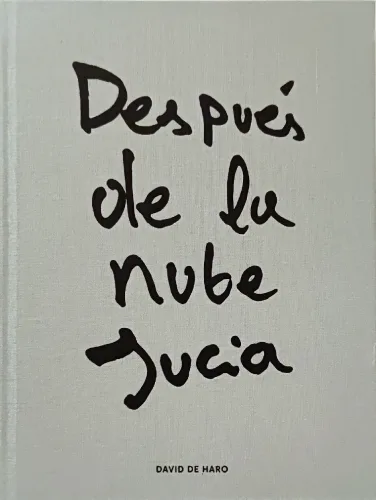 Después
de la
nube
sucia
DAVID DE HARO